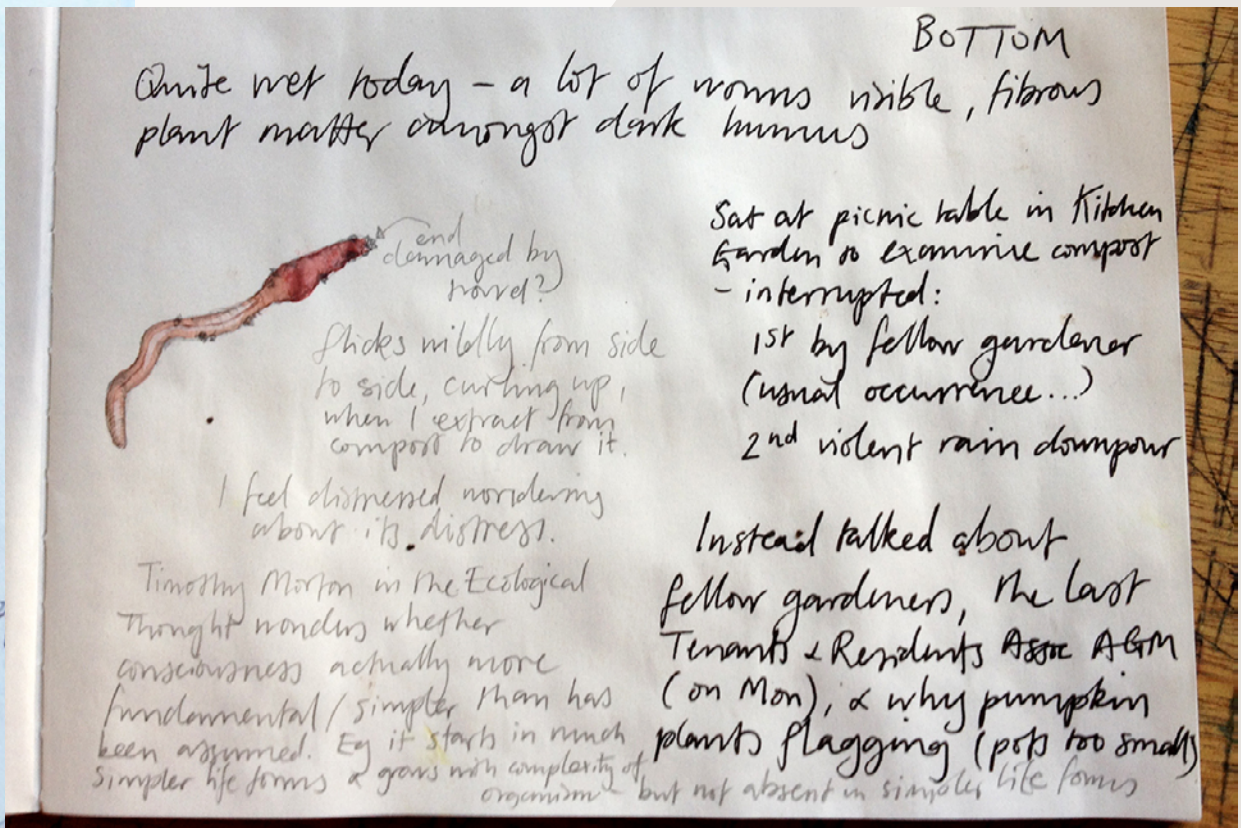 BOTTOM
Quite wet today – a lot of worms visible, fibrous
plant matter amongst dark humus
end
damaged by
travel?
flicks wildly from side
to side, curling up,
when I extract from
compost to draw it.
I feel distressed wondering
about its distress.
Timothy Morton in the Ecological
Thought wonders whether
consciousness actually more
fundamental/simpler than has
been assumed. Eg it starts in much
simpler life forms & grows with complexity of
organism – but not absent in simpler life forms
Sat at picnic table in Kitchen
Garden to examine compost
– interrupted:
1st by fellow gardener
(usual occurrence...)
2nd violent rain downpour
Instead talked about
fellow gardeners, the last
Tenants & Residents Assoc AGM
(on Mon), & why pumpkin
plants flagging (pots too small)